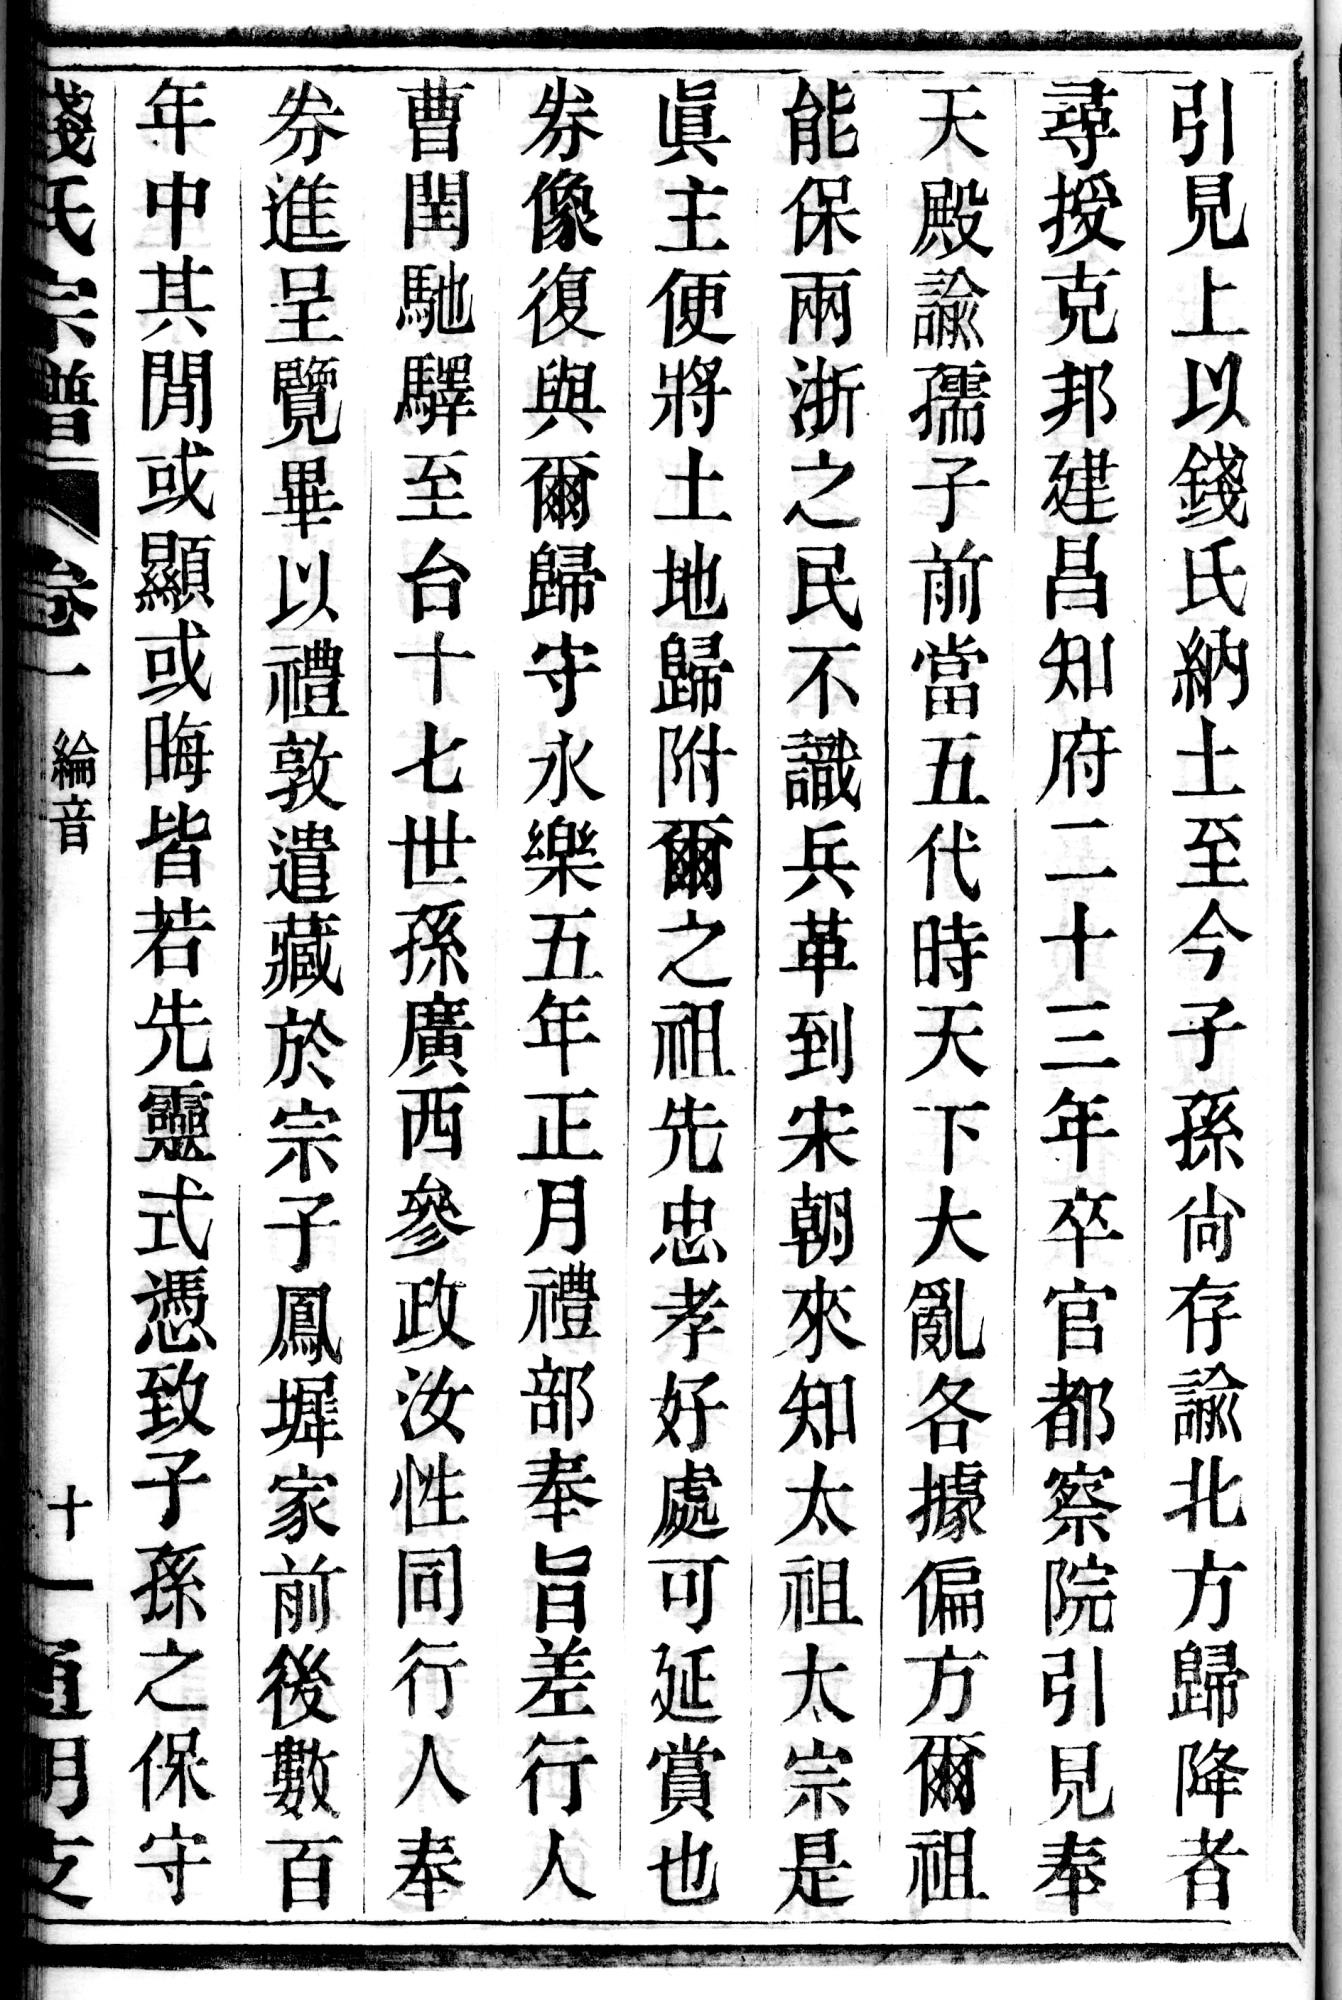 引見上以錢氏納土至今子孫尙存諭北方歸降者
尋授克邦建昌知府二十三年卒官都察院引見奉
天殿諭孺子前當五代時天下大亂各據偏方爾祖
能保兩浙之民不識兵革到宋朝來知太祖太宗是
眞主便將土地歸附爾之祖先忠孝好處可延賞也
劵像復與爾歸守永樂五年正月禮部奉旨差行人
曹閏馳驛至台十七世孫廣西參政汝性同行人奉
劵進呈覽畢以禮敦遣藏於宗子鳳墀家前後數百
年中其閒或顯或晦皆若先靈式憑致子孫之保守
錢氏宗譜 卷一 綸音 十一 通明支